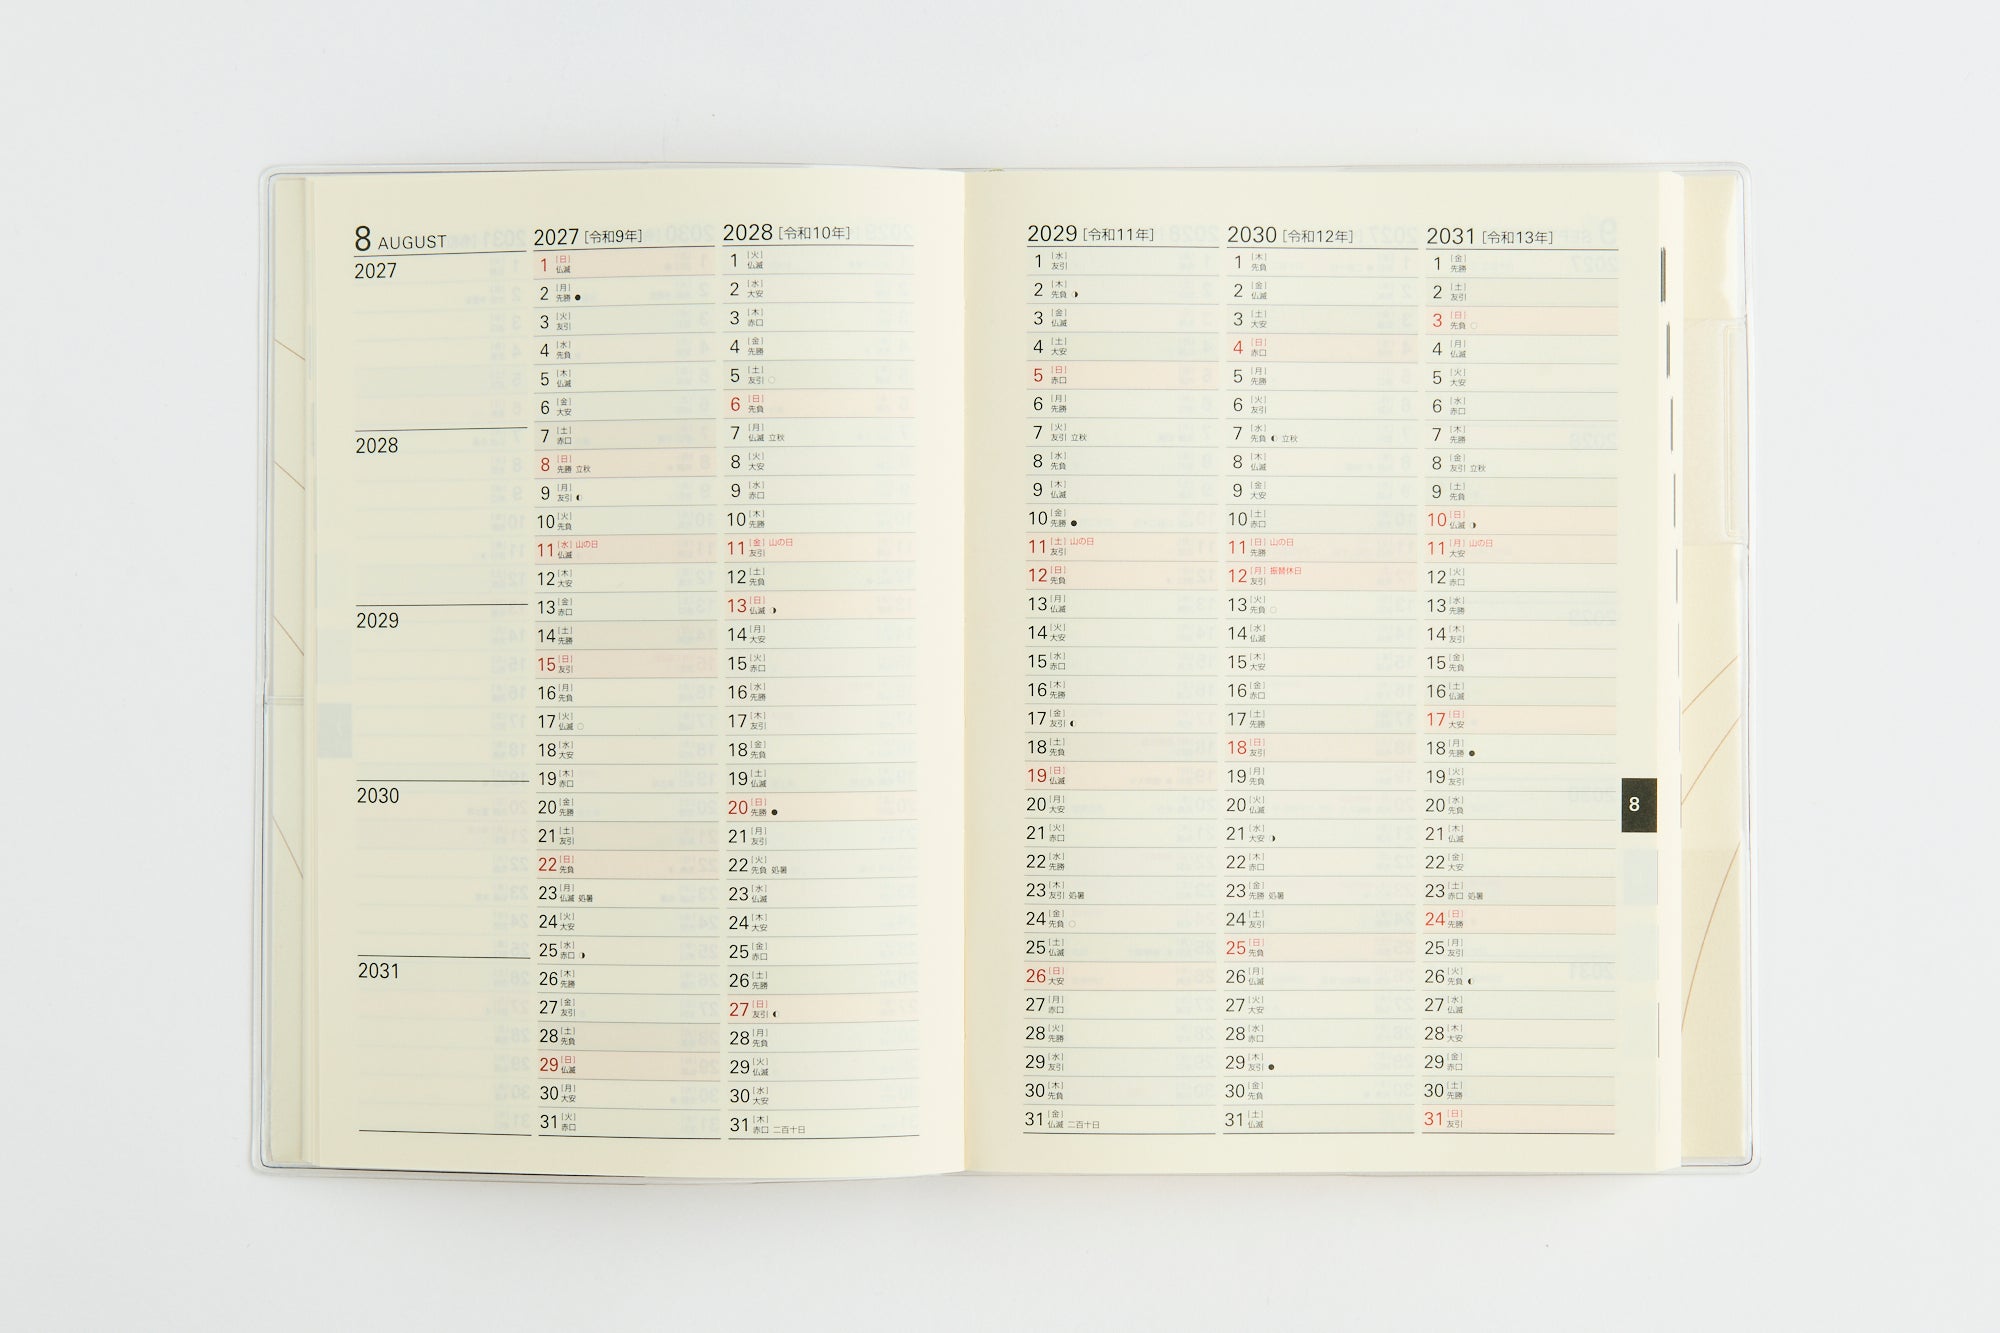 8 AUGUST
2027
2028
2029
2030
2031
2027 [令和9年]
1 [日] 仏滅
2 [月] 先勝 ●
3 [火] 友引
4 [水] 先負
5 [木] 仏滅
6 [金] 大安
7 [土] 赤口
8 [日] 先勝 立秋
9 [月] 友引 ◐
10 [火] 先負
11 [水] 山の日 仏滅
12 [木] 大安
13 [金] 赤口
14 [土] 先勝
15 [日] 友引
16 [月] 先負
17 [火] 仏滅 ○
18 [水] 大安
19 [木] 赤口
20 [金] 先勝
21 [土] 友引
22 [日] 先負
23 [月] 仏滅 処暑
24 [火] 大安
25 [水] 赤口 ◑
26 [木] 先勝
27 [金] 友引
28 [土] 先負
29 [日] 仏滅
30 [月] 大安
31 [火] 赤口
2028 [令和10年]
1 [火] 仏滅
2 [水] 大安
3 [木] 赤口
4 [金] 先勝
5 [土] 友引 ○
6 [日] 先負
7 [月] 仏滅 立秋
8 [火] 大安
9 [水] 赤口
10 [木] 先勝
11 [金] 山の日 友引
12 [土] 先負
13 [日] 仏滅 ◑
14 [月] 大安
15 [火] 赤口
16 [水] 先勝
17 [木] 友引
18 [金] 先負
19 [土] 仏滅
20 [日] 先勝 ●
21 [月] 友引
22 [火] 先負 処暑
23 [水] 仏滅
24 [木] 大安
25 [金] 赤口
26 [土] 先勝
27 [日] 友引 ◐
28 [月] 先負
29 [火] 仏滅
30 [水] 大安
31 [木] 赤口 二百十日
2029 [令和11年]
1 [水] 友引
2 [木] 先負 ◑
3 [金] 仏滅
4 [土] 大安
5 [日] 赤口
6 [月] 先勝
7 [火] 友引 立秋
8 [水] 先負
9 [木] 仏滅
10 [金] 先勝 ●
11 [土] 山の日 友引
12 [日] 先負
13 [月] 仏滅
14 [火] 大安
15 [水] 赤口
16 [木] 先勝
17 [金] 友引 ◐
18 [土] 先負
19 [日] 仏滅
20 [月] 大安
21 [火] 赤口
22 [水] 先勝
23 [木] 友引 処暑
24 [金] 先負 ○
25 [土] 仏滅
26 [日] 大安
27 [月] 赤口
28 [火] 先勝
29 [水] 友引
30 [木] 先負
31 [金] 仏滅 二百十日
2030 [令和12年]
1 [木] 先負
2 [金] 仏滅
3 [土] 大安
4 [日] 赤口
5 [月] 先勝
6 [火] 友引
7 [水] 先負 ◐ 立秋
8 [木] 仏滅
9 [金] 大安
10 [土] 赤口
11 [日] 山の日 先勝
12 [月] 振替休日 友引
13 [火] 先負 ○
14 [水] 仏滅
15 [木] 大安
16 [金] 赤口
17 [土] 先勝
18 [日] 友引
19 [月] 先負
20 [火] 仏滅
21 [水] 大安 ◑
22 [木] 赤口
23 [金] 先勝 処暑
24 [土] 友引
25 [日] 先負
26 [月] 仏滅
27 [火] 大安
28 [水] 赤口
29 [木] 友引 ●
30 [金] 先負
31 [土] 仏滅
2031 [令和13年]
1 [金] 先勝
2 [土] 友引
3 [日] 先負 ○
4 [月] 仏滅
5 [火] 大安
6 [水] 赤口
7 [木] 先勝
8 [金] 友引 立秋
9 [土] 先負
10 [日] 仏滅 ◑
11 [月] 山の日 大安
12 [火] 赤口
13 [水] 先勝
14 [木] 友引
15 [金] 先負
16 [土] 仏滅
17 [日] 大安
18 [月] 先勝 ●
19 [火] 友引
20 [水] 先負
21 [木] 仏滅
22 [金] 大安
23 [土] 赤口 処暑
24 [日] 先勝
25 [月] 友引
26 [火] 先負 ◐
27 [水] 仏滅
28 [木] 大安
29 [金] 赤口
30 [土] 先勝
31 [日] 友引
8